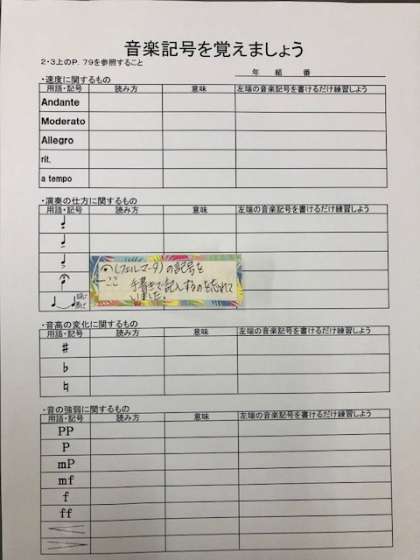 音楽記号を覚えましょう
2・3上のP. 79を参照すること
年 組 番
・速度に関するもの
用語・記号 読み方 意味 左端の音楽記号を書けるだけ練習しよう
Andante
Moderato
Allegro
rit.
a tempo
・演奏の仕方に関するもの
用語・記号 読み方 意味 左端の音楽記号を書けるだけ練習しよう
(フェルマータ)の記号を
ここ 手書きで記入するのを忘れて
いました。
・音高の変化に関するもの
用語・記号 読み方 意味 左端の音楽記号を書けるだけ練習しよう
♯
♭
♮
・音の強弱に関するもの
用語・記号 読み方 意味 左端の音楽記号を書けるだけ練習しよう
PP
P
mP
mf
f
ff